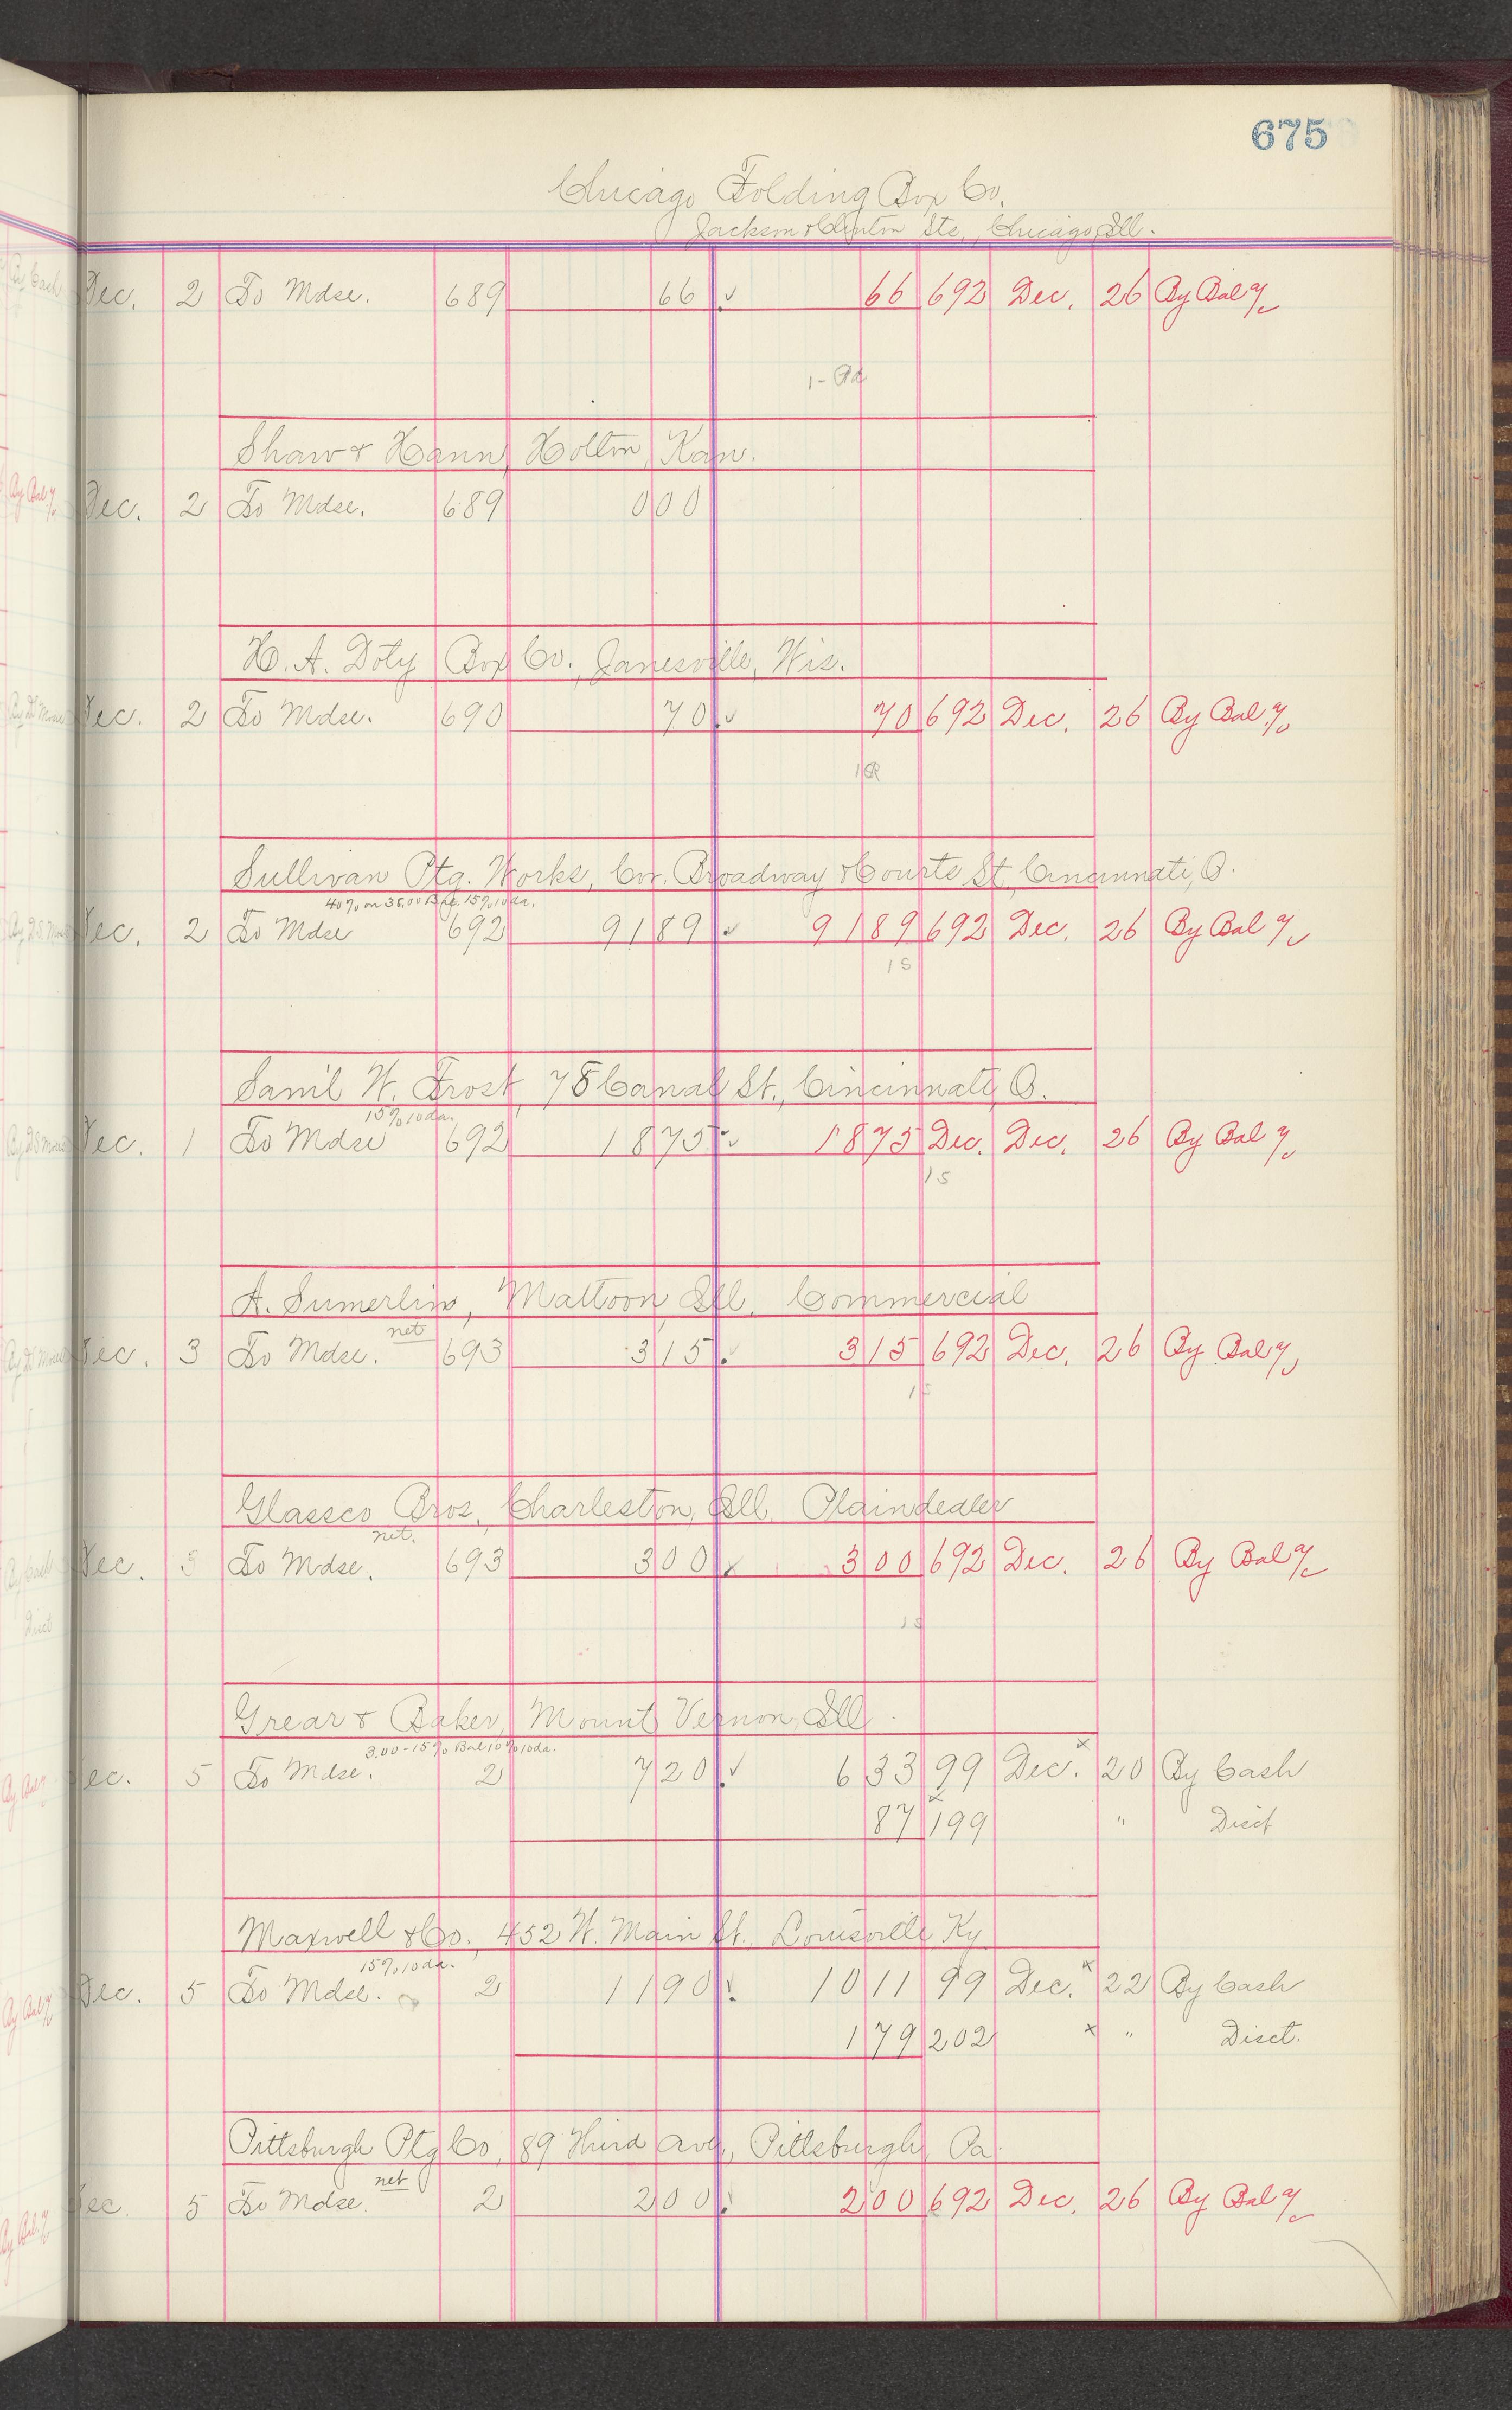 675
Chicago Folding Box Co.
Jackson & Clinton Sts., Chicago, Ill.
Dec. 2 To Mdse. 689 66 ✓ 66 692 Dec. 26 By Bal %
1-
Shaw & Hann, Holton, Kan.
Dec. 2 To Mdse. 689 0 00
H. A. Doty Box Co., Janesville, Wis.
Dec. 2 To Mdse. 690 70 ✓ 70 692 Dec. 26 By Bal. %
Sullivan Ptg. Works, Cor. Broadway & Courts St, Cincinnati, O.
40% on 35.00 Bal. 15% 10 da.
Dec. 2 To Mdse 692 91 89 ✓ 91 89 692 Dec. 26 By Bal %
1 S
Sam'l W. Frost, 75 Canal St., Cincinnati, O.
15% 10 da.
Dec. 1 To Mdse 692 18 75 ✓ 18 75 Dec. Dec. 26 By Bal %
1 S
A. Sumerlin, Mattoon, Ill. Commercial
net
Dec. 3 To Mdse. 693 3 15 ✓ 3 15 692 Dec. 26 By Bal %
1 S
Glassco Bros., Charleston, Ill. Plaindealer
net.
Dec. 3 To Mdse. 693 3 00 ✓ 3 00 692 Dec. 26 By Bal %
1 S
Grear & Baker, Mount Vernon, Ill.
3.00-15% Bal 10% 10 da.
Dec. 5 To Mdse. 2 7 20 ✓ 6 33 99 Dec. x 20 By Cash
87 199 " Disct
Maxwell & Co., 452 W. Main St., Louisville Ky
15% 10 da.
Dec. 5 To Mdse. 2 11 90 ✓ 10 11 99 Dec. x 22 By Cash
1 79 202 x " Disct.
Pittsburgh Ptg Co, 89 Third Ave., Pittsburgh, Pa.
net
Dec. 5 To Mdse. 2 2 00 2 00 692 Dec. 26 By Bal %